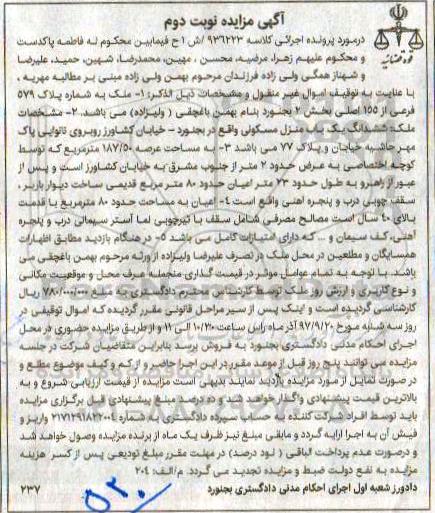 آگهی مزایده نوبت دوم
درمورد پرونده اجرائی کلاسه ۹۳۶۲۲۳/ش ۱ ح فیمابین محکوم له فاطمه پاکدست
و محکوم علیهم زهرا، مرضیه، محسن، مهین، محمدرضا، شهین، حمید، علیرضا
و شهناز همگی ولی زاده فرزندان مرحوم بهمن ولی زاده مبنی بر مطالبه مهریه،
با عنایت به توقیف اموال غیر منقول و مشخصات ذیل الذکر: ۱- ملک به شماره پلاک ۵۷۹
فرعی از ۱۵۵ اصلی بخش ۲ بجنورد بنام بهمن باغچقی (ولیزاده) می باشد. ۲- مشخصات
ملک: ششدانگ یک باب منزل مسکونی واقع در بجنورد - خیابان کشاورز روبروی نانوایی پاک
مهر حاشیه خیابان و پلاک ۷۷ می باشد ۳- به مساحت عرصه ۱۸۷/۵۰ مترمربع که توسط
کوچه اختصاصی به عرض حدود ۲ متر از جنوب مشرق به خیابان کشاورز است و پس از
عبور از راهرو به طول حدود ۲۳ متر اعیان حدود ۸۰ متر مربع قدیمی ساخت دیوار باربر،
سقف چوبی درب و پنجره آهنی واقع است ۴- اعیان به مساحت حدود ۸۰ مترمربع با قدمت
بالای ۴۰ سال است مصالح مصرفی شامل سقف با تیرچوبی نما آستر سیمانی درب و پنجره
آهنی، کف سیمان و ... که دارای امتیازات کامل می باشد ۵- در هنگام بازدید مطابق اظهارات
همسایگان و مطلعین در محل ملک در تصرف علیرضا ولیزاده از ورثه مرحوم بهمن باغچقی می
باشد. با توجه به تمام عوامل موثر در قیمت گذاری منجمله عرف محل و موقعیت مکانی
و نوع کاربری و ارزش روز ملک توسط کارشناس محترم دادگستری به مبلغ ۷۸۰/۰۰۰/۰۰۰ ریال
کارشناسی گردیده است و اینک پس از سیر مراحل قانونی مقرر گردیده که اموال توقیفی در
روز سه شنبه مورخ ۹۷/۹/۲۰ آذر ماه راس ساعت ۱۰/۳۰ الی ۱۱ و از طریق مزایده حضوری در محل
اجرای احکام مدنی دادگستری بجنورد به فروش برسد بنابراین متقاضیان شرکت در جلسه
مزایده می توانند پنج روز قبل از موعد مقرر در این اجرا حاضر و از کم و کیف موضوع مطلع و
در صورت تمایل از مورد مزایده بازدید نمایند بدیهی است مزایده از قیمت ارزیابی شروع و به
بالاترین قیمت پیشنهادی واگذار خواهد شد و ده درصد مبلغ پیشنهادی قبل برگزاری مزایده
باید توسط افراد شرکت کننده به حساب سپرده دادگستری به شماره ۲۱۷۱۲۹۱۸۲۲۰۰۴ واریز و
فیش آن به اجرا ارایه گردد و مابقی مبلغ نیز ظرف یک ماه از برنده مزایده وصول خواهد شد
و درصورت عدم پرداخت الباقی (نود درصد) در مهلت مقرر مبلغ تودیعی پس از کسر هزینه
مزایده به نفع دولت ضبط و مزایده تجدید می گردد. م/الف: ۲۰۴
دادورز شعبه اول اجرای احکام مدنی دادگستری بجنورد ۲۳۷